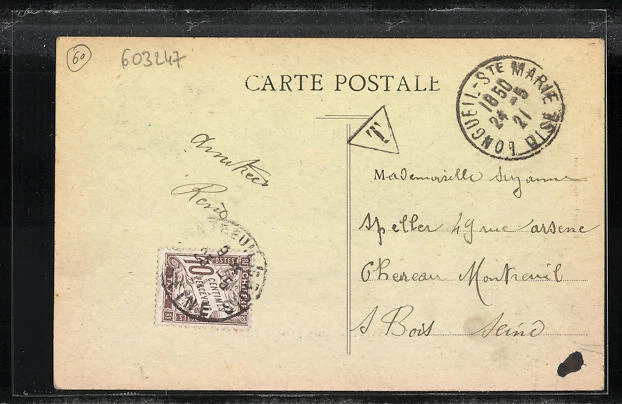 60
603247
CARTE POSTALE
LONGUEIL-STE MARIE OISE
18 50
24 -5
21
T
Amitiés
René
Mademoiselle Suzanne
Speller 49 rue arsene
Chereau Montreuil
s Bois Seine
POSTES
10
CENTIMES
A PERCEVOIR